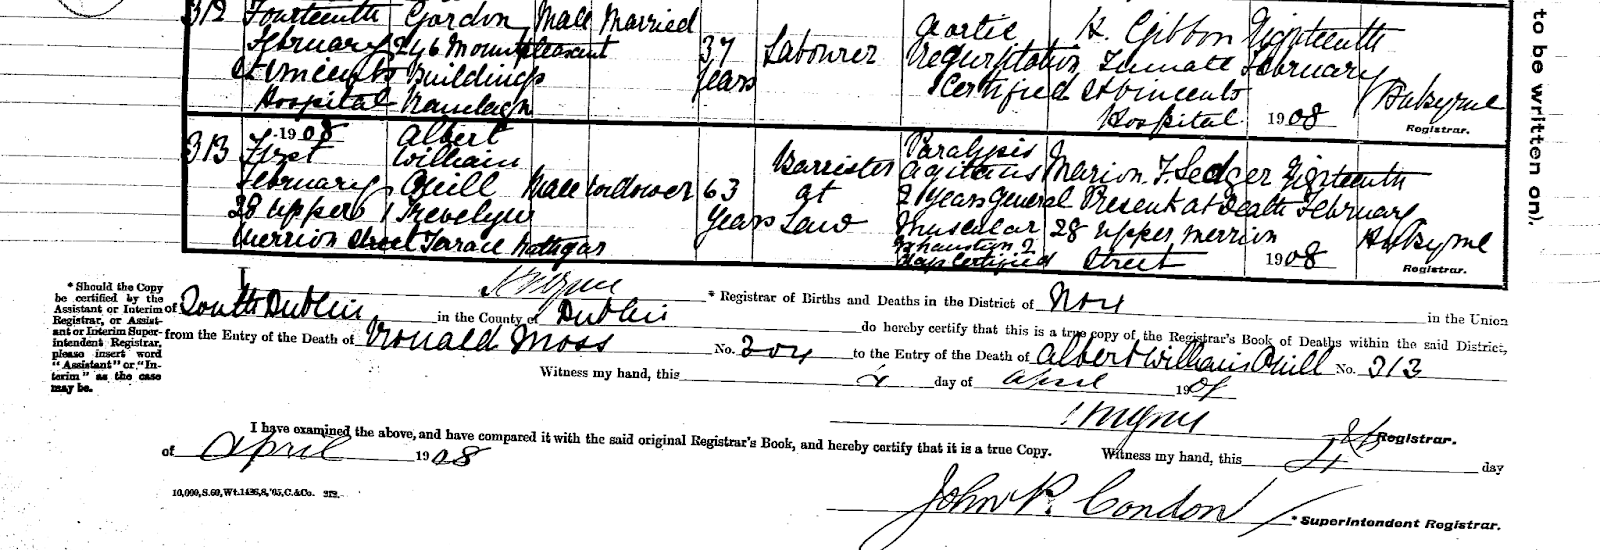 312 Fourteenth Gordon Male Married 37 Years Labourer Aortic H. Gibbon Eighteenth
February 246 Mountpleasant Regurgitation Inmate February
St Vincents Buildings Certified St Vincents
Hospital Ranelagh Hospital 1908 Registrar.
313 1908 First Albert Male Widower 63 Years Barrister at Law Paralysis Marion F. Ledger Eighteenth
February William Agitans Present at Death February
28 upper Quill 2 years General 28 upper merrion
Merrion Street Trevelyan Muscular Street 1908
Terrace Rathgar Exhaustion 7
Days Certified Registrar.
to be written on).
* Should the Copy
be certified by the
Assistant or Interim
Registrar, or Assist-
ant or Interim Super-
intendent Registrar,
please insert word
"Assistant" or "In-
terim" as the case
may be.
I, * Registrar of Births and Deaths in the District of No 4 in the Union
of South Dublin in the County of Dublin do hereby certify that this is a true copy of the Registrar's Book of Deaths within the said District,
from the Entry of the Death of Ronald Moss No. 304 to the Entry of the Death of Albert William Quill No. 313
Witness my hand, this 4 day of April 190
Registrar.
I have examined the above, and have compared it with the said original Registrar's Book, and hereby certify that it is a true Copy. Witness my hand, this day
of April 1908
10,000, S. 60, Wt. 1436, 8, '05, C. & Co. 212.
John P. Condon
* Superintendent Registrar.